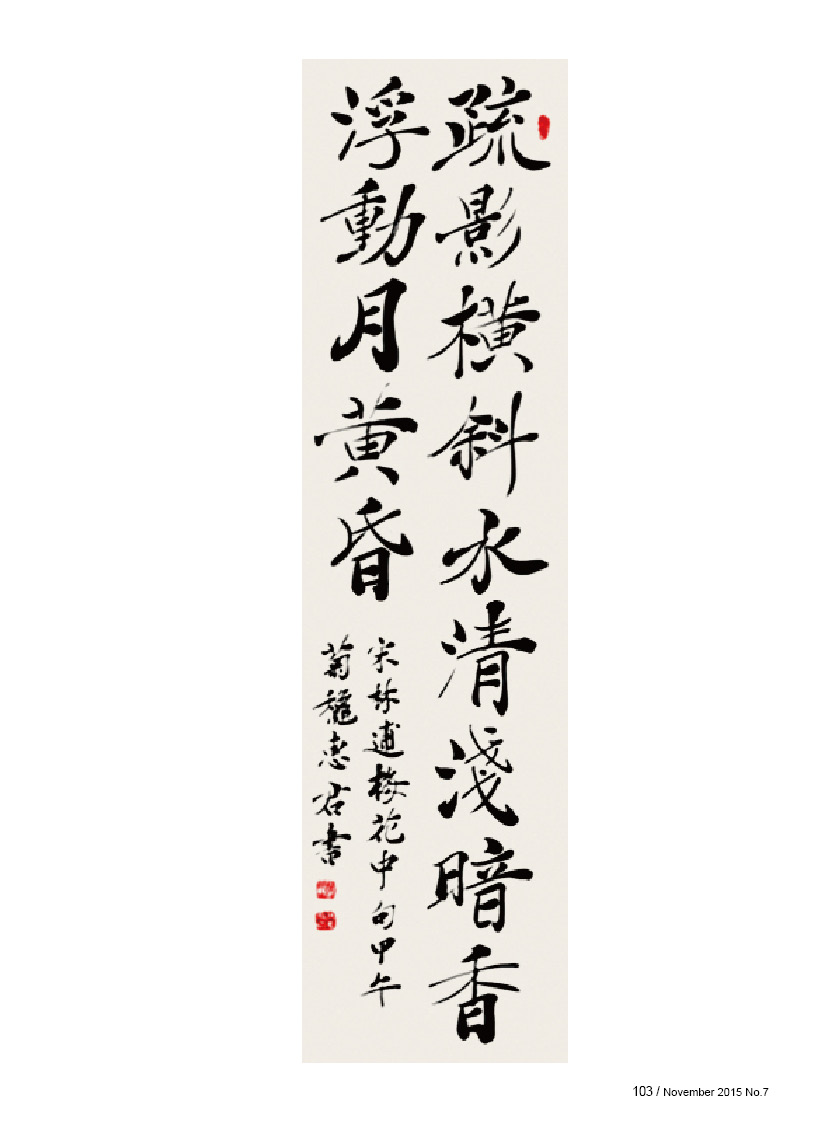 疏影橫斜水清淺暗香
浮動月黃昏
宋林逋梅花中句甲午
菊龝惠君書
103 / November 2015 No.7